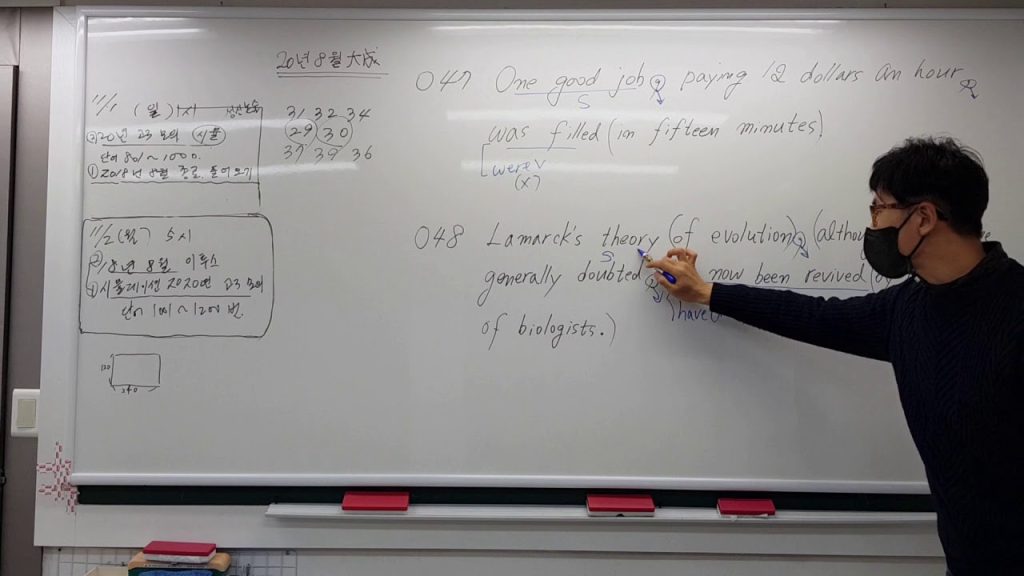 20년 8월 大成
11/1 (월) 1시
②20년 고3 모의 시풀
단어 801~1000.
①2018년 8월 종로. 풀어오기
31 32 34
29 30
37 39 36
11/2 (월) 5시
② 18년 8월 이투스
① 시뮬레이션 2020년 고3 모의
단어 1001~1200번
120
240
047 One good job, paying 12 dollars an hour,
S
was filled (in fifteen minutes)
were ∨
(×)
048 Lamarck's theory (of evolution), (althou
S
generally doubted now been revived
have
of biologists.)